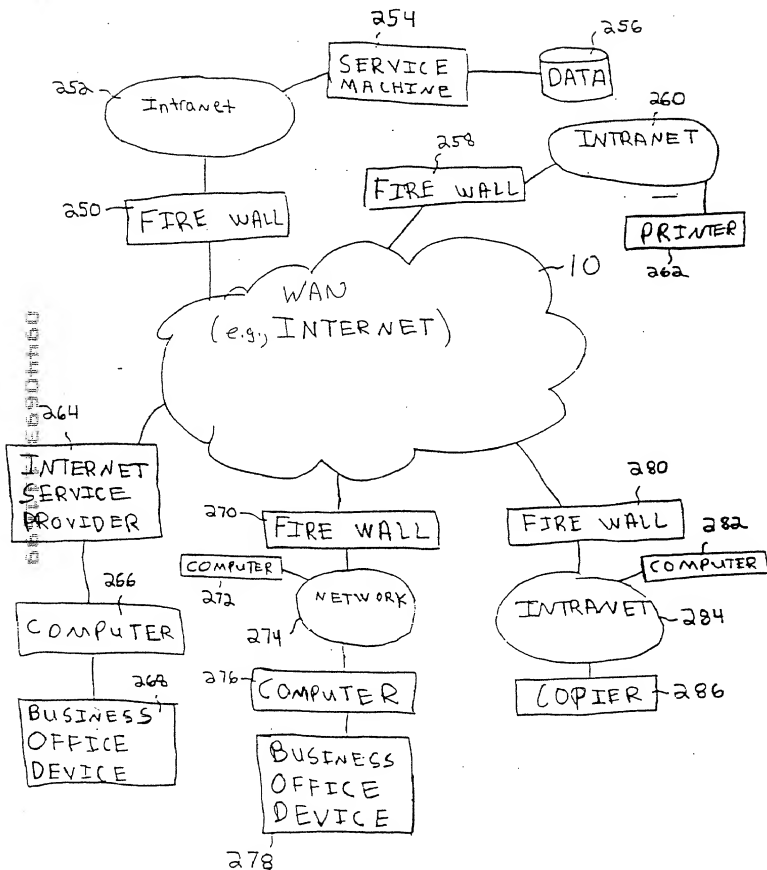 254
256
SERVICE
MACHINE
DATA
252
Intranet
260
INTRANET
258
FIRE WALL
250
FIRE WALL
PRINTER
262
10
WAN
(e.g., INTERNET)
264
INTERNET
SERVICE
PROVIDER
280
270
FIRE WALL
FIRE WALL
282
COMPUTER
COMPUTER
272
266
NETWORK
INTRANET
284
274
COMPUTER
276
COMPUTER
268
COPIER
286
BUSINESS
OFFICE
DEVICE
BUSINESS
OFFICE
DEVICE
278